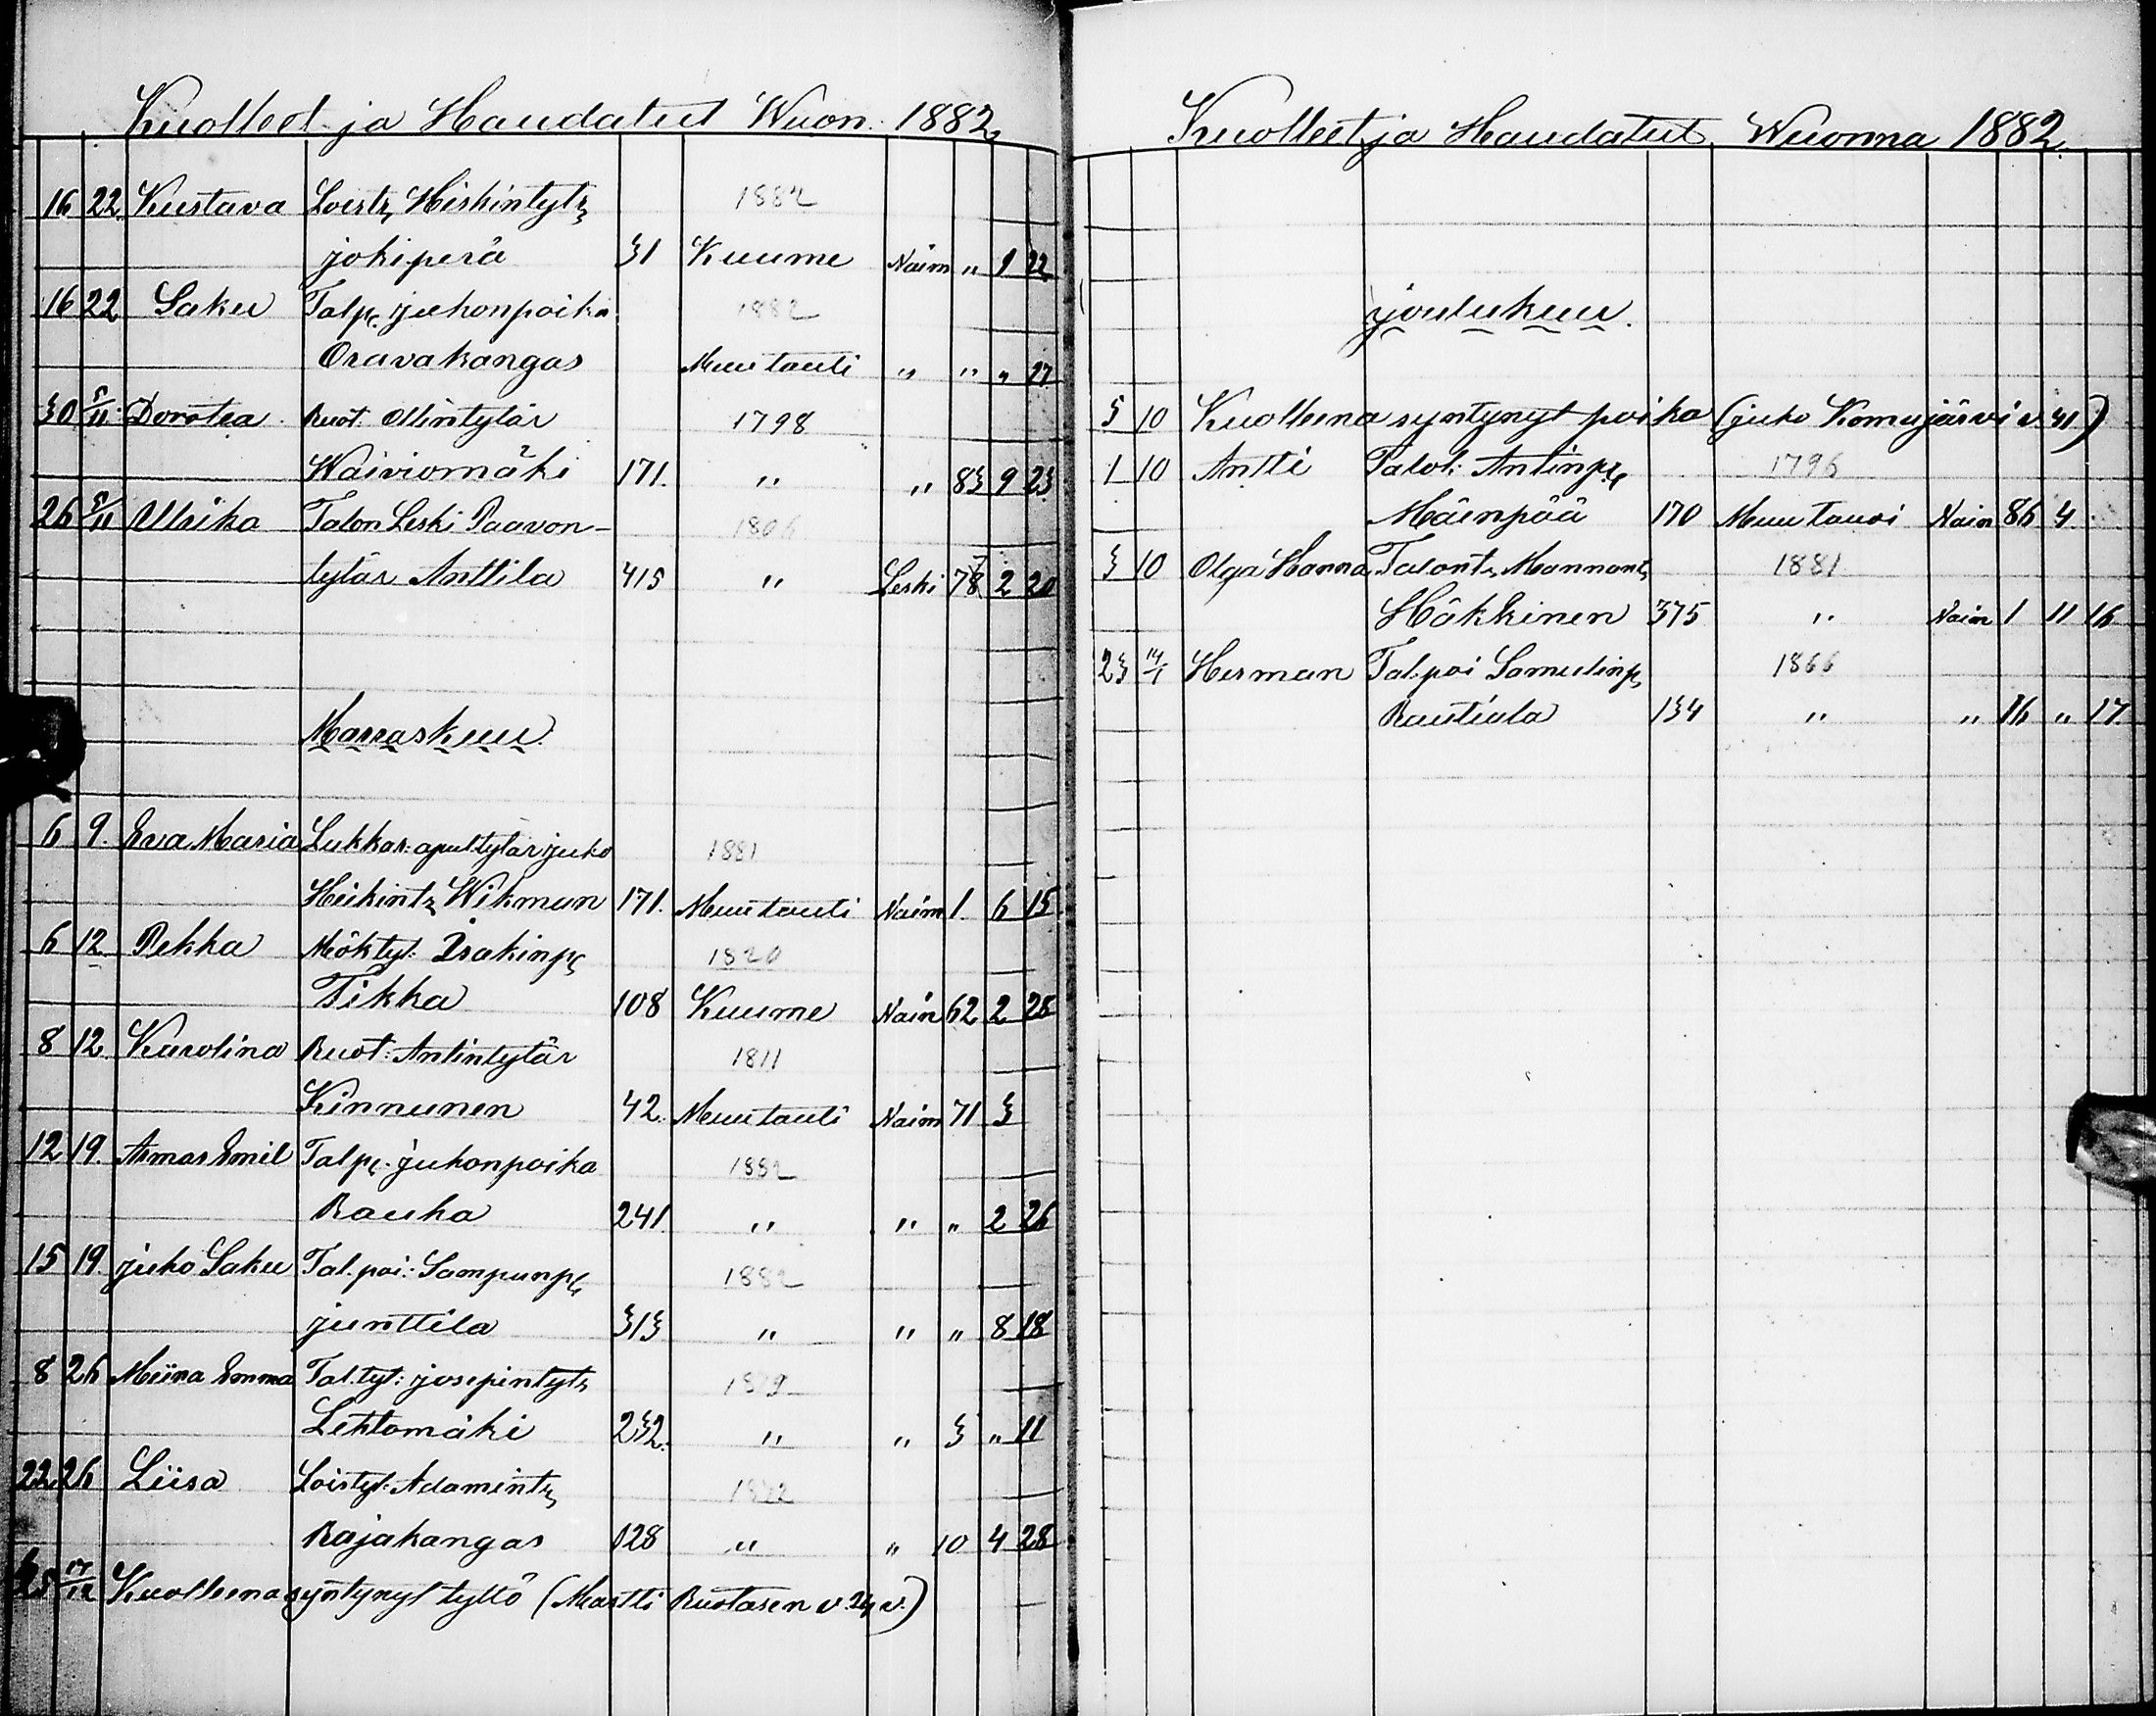 Kuolleet ja Haudatut Wuon. 1882
16 22. Kustava Loistr Heikintytr 1882
jokiperä 31 Kuume Naim „ 1 22
16 22 Saku Talp. juhonpoika 1882
Oravakangas Muu tauti „ „ „ 27
30 5/11. Dorotea Ruot. Ollintytär 1798
Waiviomäki 171. „ „ 83 9 23
26 5/11 Ulrika Talon Leski Paavon-
1806
tytär Anttila 415 „ Leski 78 2 20
Marraskuu.
6 9. Eva Maria Lukkar: apul tytär juho 1881
Heikintr Wikman 171. Muu tauti Naim 1. 6 15
6 12 Pekka Möktyl. Isakinp. 1820
Tikka 108 Kuume Nain 62 2 28
8 12 Karolina Ruot: Antintytär 1811
Kinnunen 42. Muu tauti Naim 71 3
12 19. Armas Emil Talp. juhonpoika 1882
Rauha 241. „ „ „ 2 26
15 19. juho Saku Tal. poi: Sampunp. 1882
junttila 313 „ „ „ 8 18
8 26 Miina Emma Tal. tyt: josepintytr 1879
Lehtomäki 232. „ „ 3 „ 11
22 26 Liisa Loistyt: Adamintr 1872
Rajakangas 128 „ „ 10 4 28
25 17/12 Kuolleena syntynyt tyttö (Martti Ruotasen v. 24 v.)
Kuolleet ja Haudatut Wuonna 1882.
joulukuu.
5 10 Kuolleena syntynyt poika (juho Komujärvi v. 41)
1 10 Antti Talol: Antinp. 1796
Mäenpää 170 Muu Tauti Nain 86 4
3 10 Olga Hanna Talontr Mannant. 1881
Häkkinen 375 „ Naim 1 11 16
23 14/1 Herman Tal. poi Samulinp. 1866
Rautiala 134 „ „ 16 „ 17.